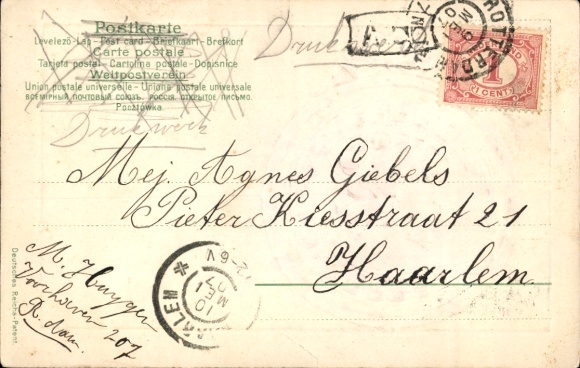 Postkarte
Levelező-Lap - Post card - Briefkaart - Brefkort
Carte postale
Tarjeta postal - Cartolina postale - Dopisnice
Weltpostverein
Union postale universelle - Unione postale universale
ВСЕМІРНЫЙ ПОЧТОВЫЙ СОЮЗЪ. РОССІЯ. ОТКРЫТОЕ ПИСЬМО.
Pocztówka.
Drukwerk
Drukwerk
ROTTERDAM
1
(1 CENT)
Mej. Agnes Giebels
Pieter Kiesstraat 21
Haarlem.
12-6V
10
M
Deutsches Reichs-Patent
M. Huygen
Voorhaven 207
R.dam.